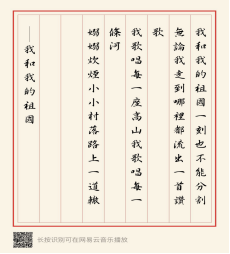 我和我的祖國一刻也不能分割
無論我走到哪裡都流出一首讚
歌
我歌唱每一座高山我歌唱每一
條河
嫋嫋炊煙小小村落路上一道轍
——我和我的祖國
长按识别可在网易云音乐播放